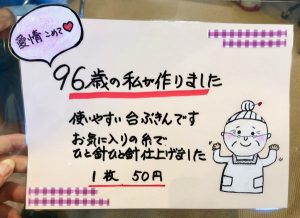 愛情こめて
96歳の私が作りました
使いやすい台ぶきんです
お気に入りの糸で
ひと針ひと針仕上げました
1枚 50円